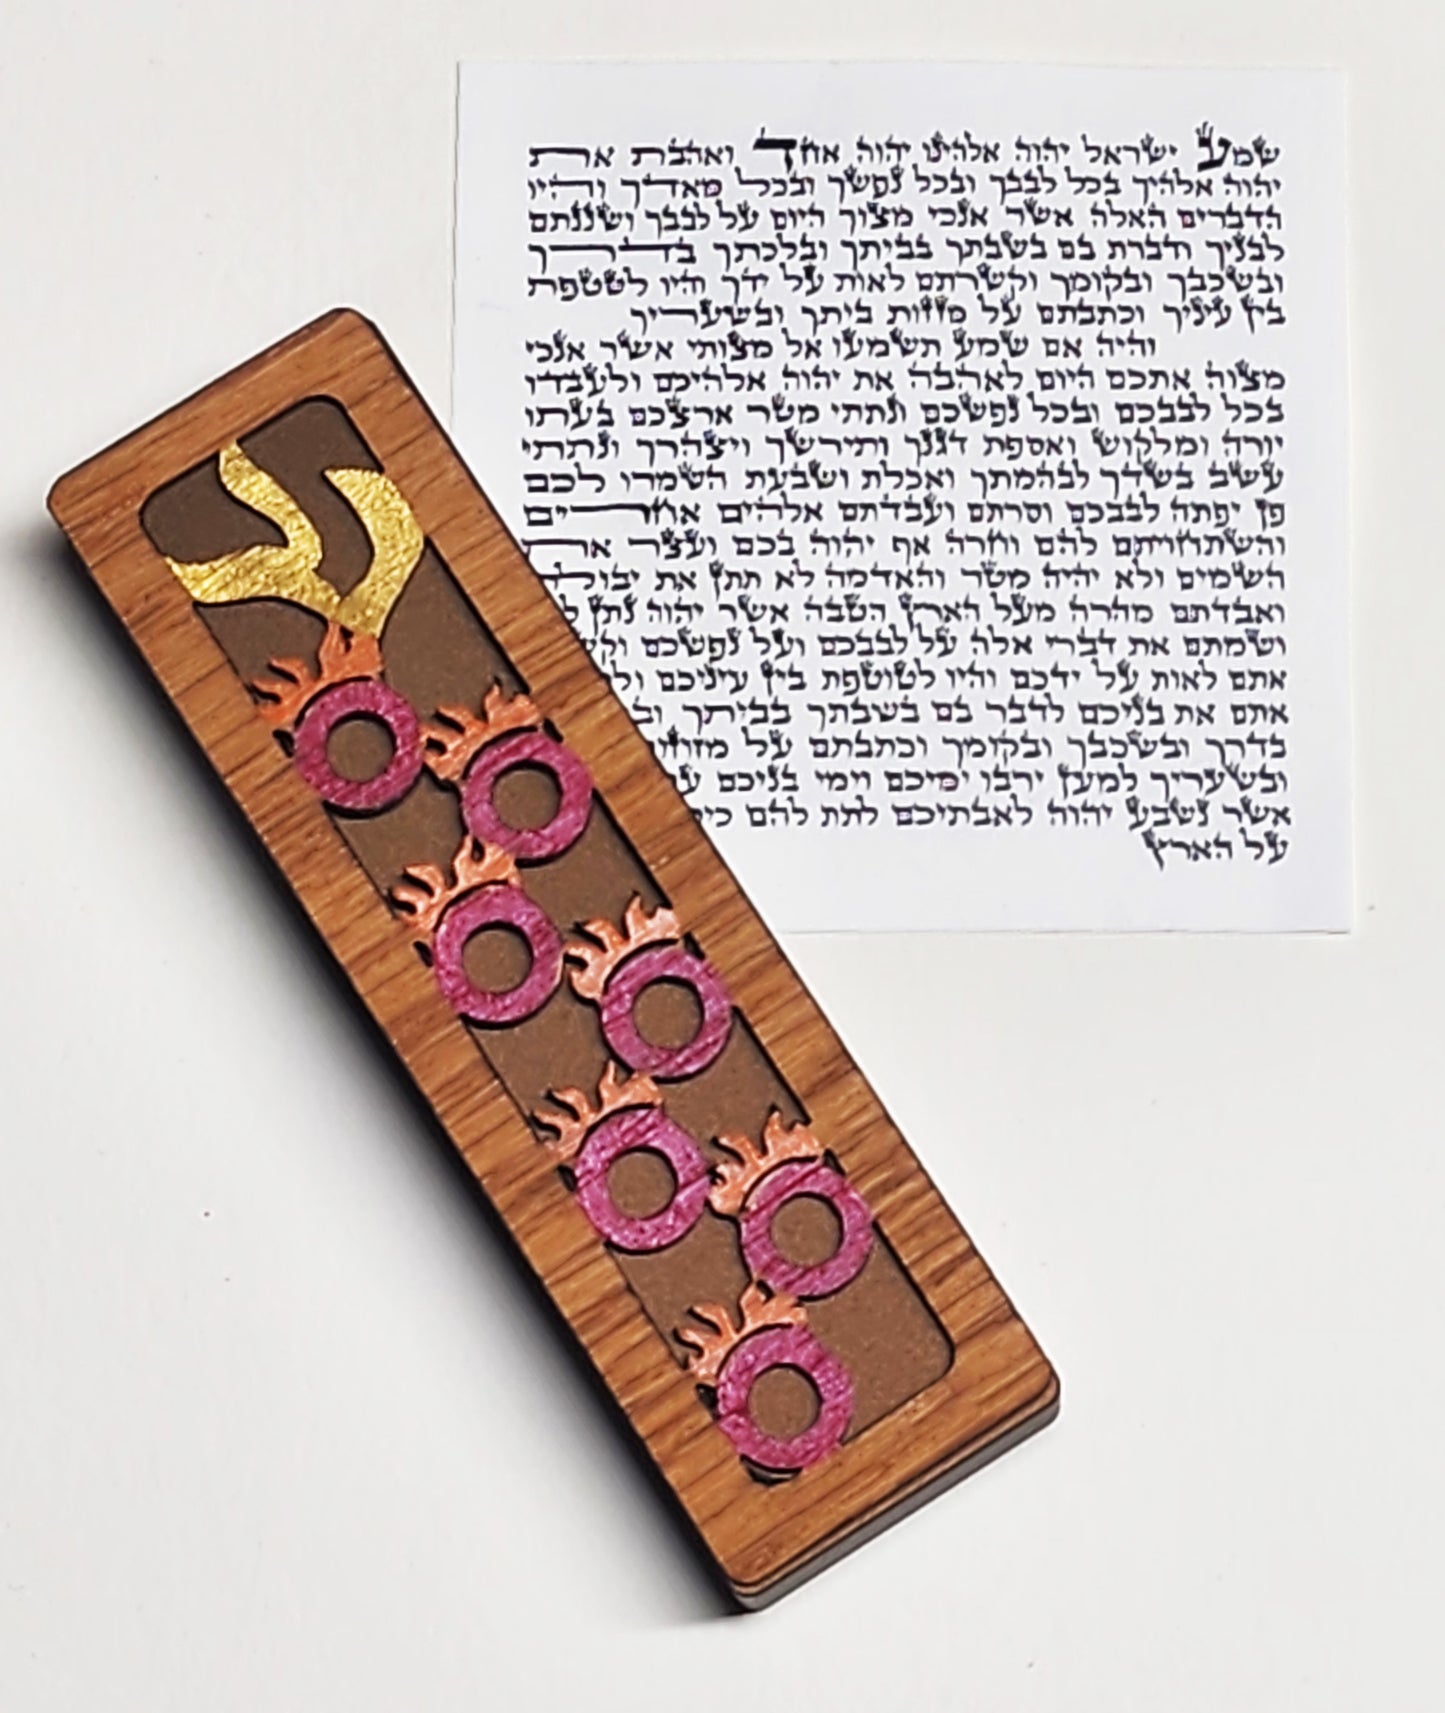 ש
שמע ישראל יהוה אלהינו יהוה אחד ואהבת את
יהוה אלהיך בכל לבבך ובכל נפשך ובכל מאדך והיו
הדברים האלה אשר אנכי מצוך היום על לבבך ושננתם
לבניך ודברת בם בשבתך בביתך ובלכתך בדרך
ובשכבך ובקומך וקשרתם לאות על ידך והיו לטטפת
בין עיניך וכתבתם על מזזות ביתך ובשעריך
והיה אם שמע תשמעו אל מצותי אשר אנכי
מצוה אתכם היום לאהבה את יהוה אלהיכם ולעבדו
בכל לבבכם ובכל נפשכם ונתתי מטר ארצכם בעתו
יורה ומלקוש ואספת דגנך ותירשך ויצהרך ונתתי
עשב בשדך לבהמתך ואכלת ושבעת השמרו לכם
פן יפתה לבבכם וסרתם ועבדתם אלהים אחרים
והשתחויתם להם וחרה אף יהוה בכם ועצר את
השמים ולא יהיה מטר והאדמה לא תתן את יבולה
ואבדתם מהרה מעל הארץ הטבה אשר יהוה נתן
ושמתם את דברי אלה על לבבכם ועל נפשכם
אתם לאות על ידכם והיו לטוטפת בין עיניכם
אתם את בניכם לדבר בם בשבתך בביתך
בדרך ובשכבך ובקומך וכתבתם על
ובשעריך למען ירבו ימיכם וימי בניכם
אשר נשבע יהוה לאבתיכם לתת להם
על הארץ